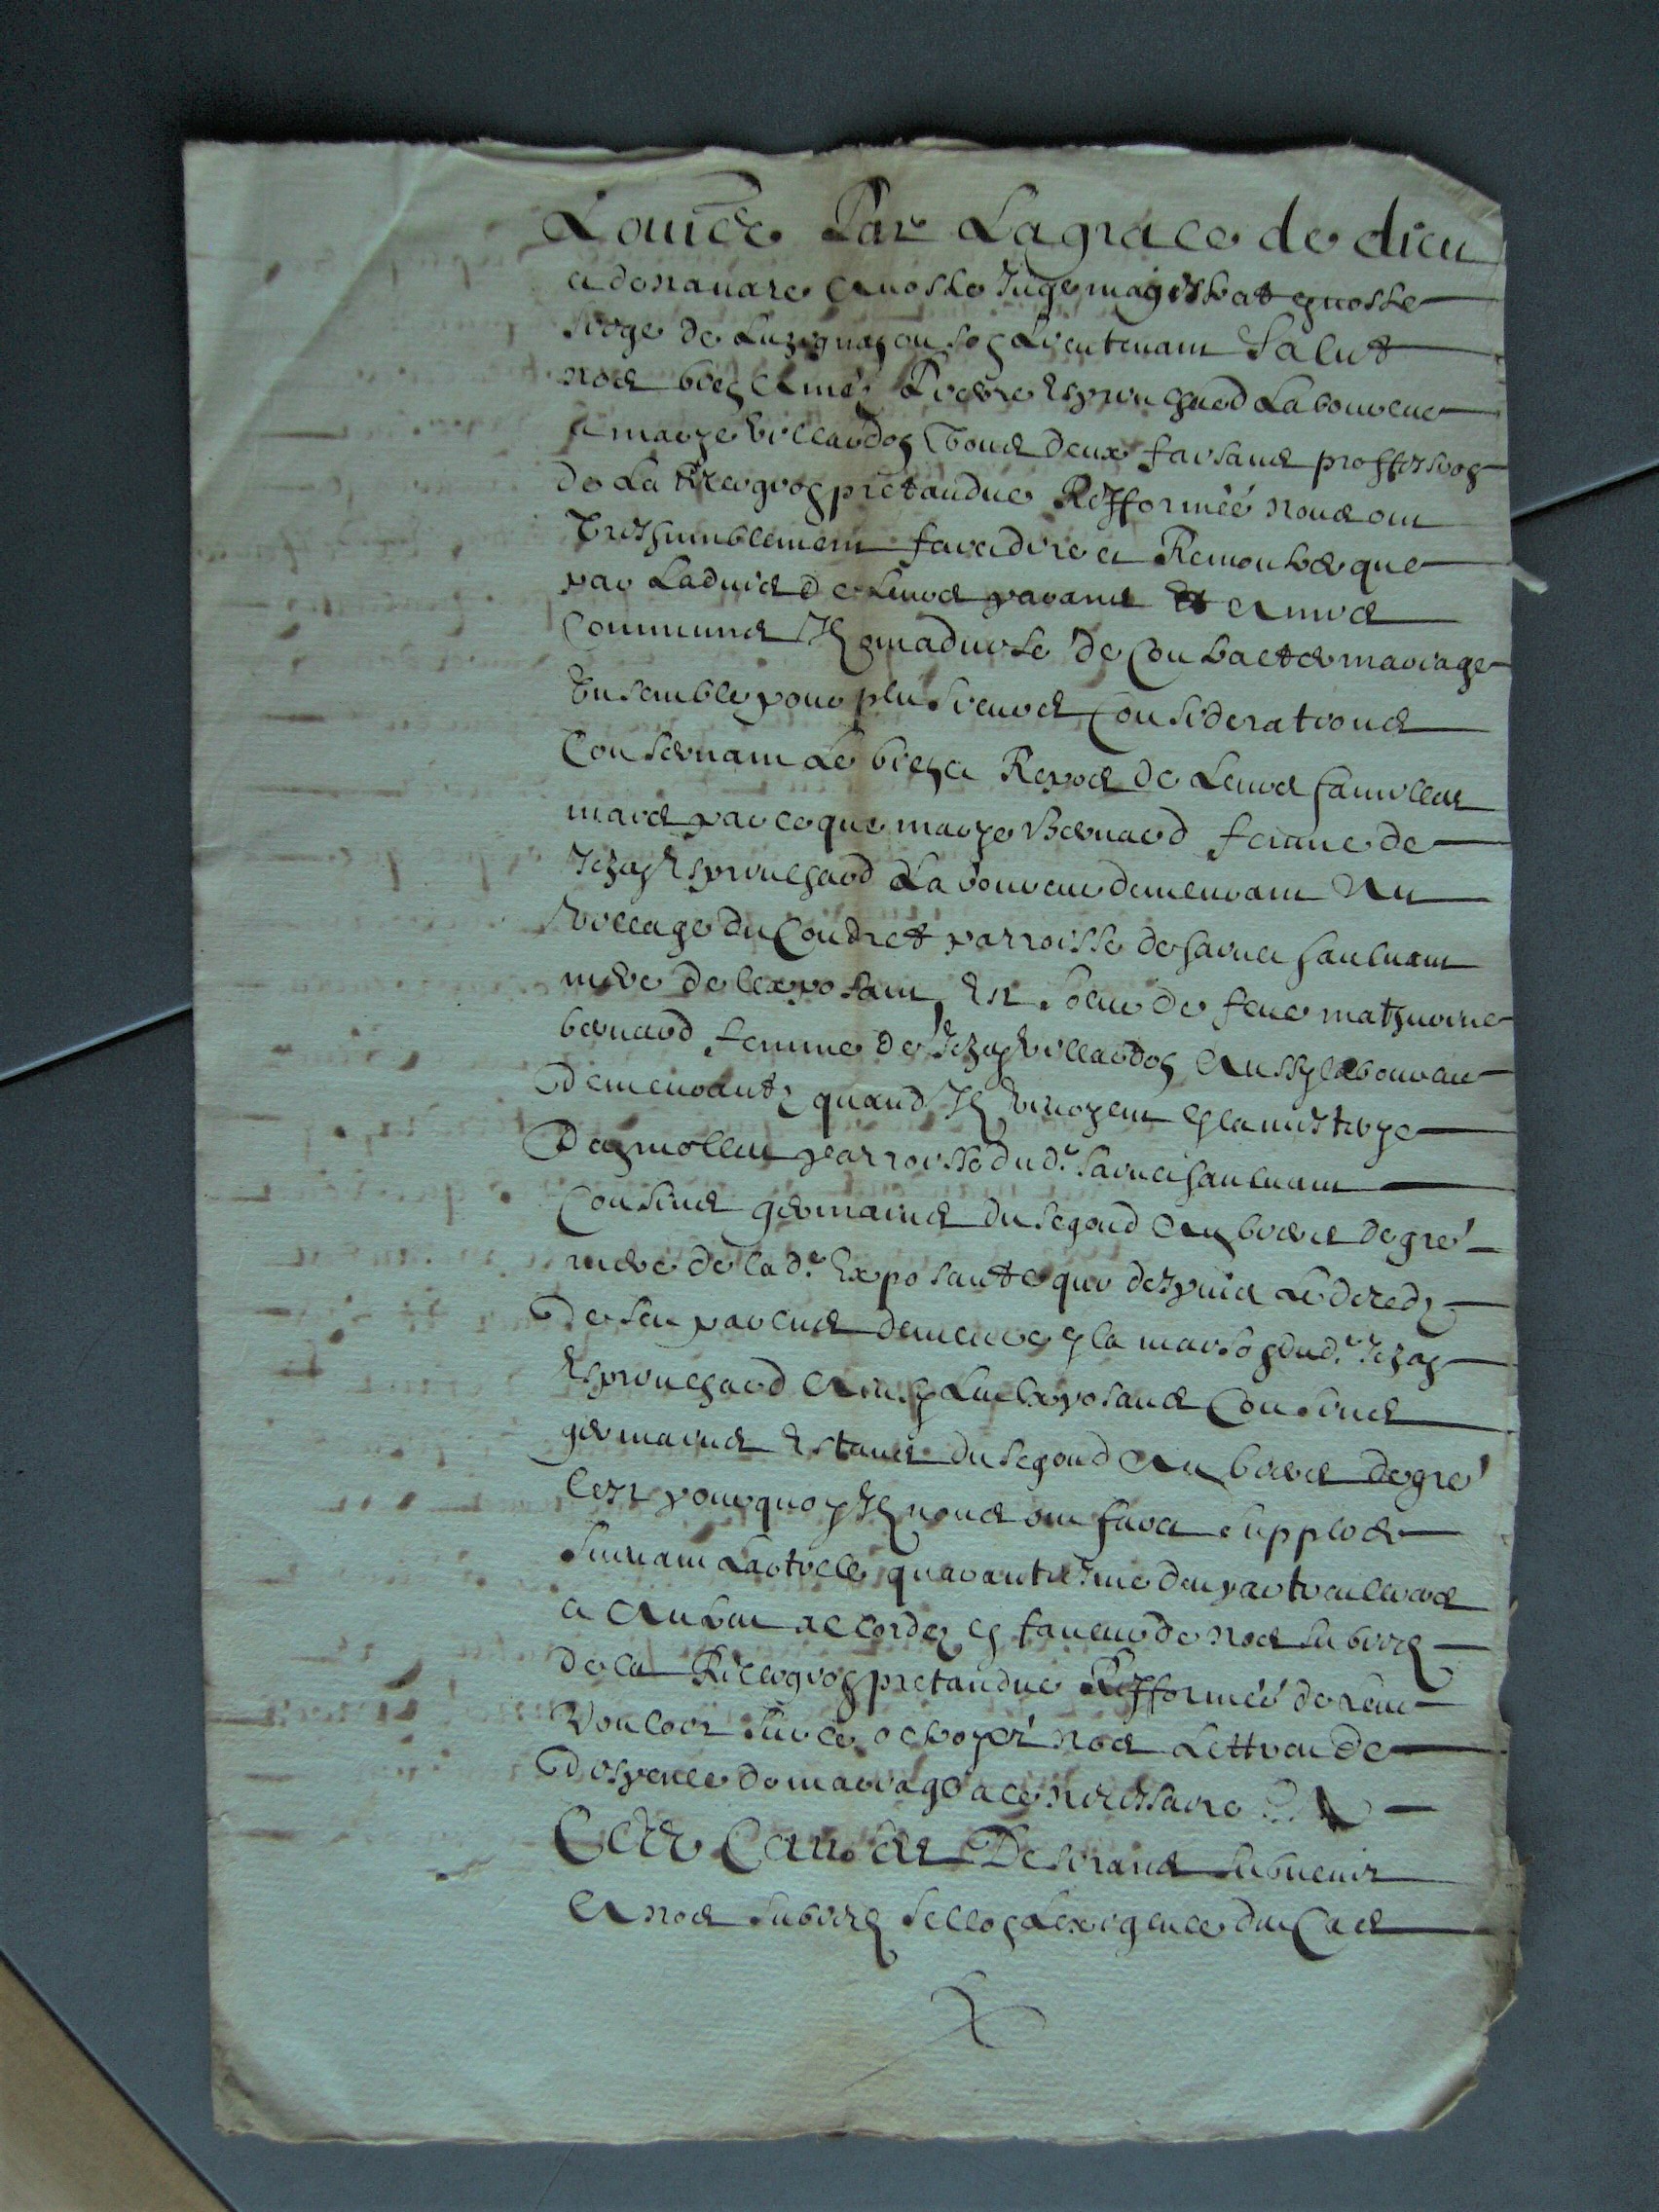 Louis Par La grace de dieu
et de navare A nostre Juge magistrat en nostre
siege de Luzignan ou son Lieutenant Salut
nos bien Amés Pierre Esprinchard Laboureur
et marye billaudon Tous deux faisans proffession
de La Relligion pretandue Refformée nous ont
Treshumblement faict dire et Remonstrer que
par Ladvis de Leurs parans Et Amis
Communs Ilz ont advisé de Contracter mariage
Ensemble pour plusieurs Considerations
Consernant Le bien et Repos de Leurs familles
mais par ce que marye Bernard femme de
Jehan Esprinchard Laboureur demeurant Au
village du Coudret parroisse de sainct sauluant
mere de lexposant, Est soeur de feue mathurine
bernard femme de Jehan billaudon Aussy laboureur
demeurants quand Ilz vivoyent en la mestoye
parroisse dud. sainct sauluant
Cousines germaines du segond Au tiers degré
mere de lad. Exposante qui despuis Le deceds
de ses parens demeure en la maison dud. Jehan
Esprinchard Ainsy Les Exposans Cousins
germains Estans du segond Au tiers degré
Cest pourquoy Ilz nous ont faict supplier
suivant Larticle quarantiesme des particuliers
et Autres accordez en faveur de nos subiectz
de la Relligion pretandue Refformée de Leur
Vouloir sur ce octroyer nos Lettres de
dispence de mariage a ce necessaire
Ces Causes Desirans subvenir
A nos subiectz sellon Lexigence des Cas